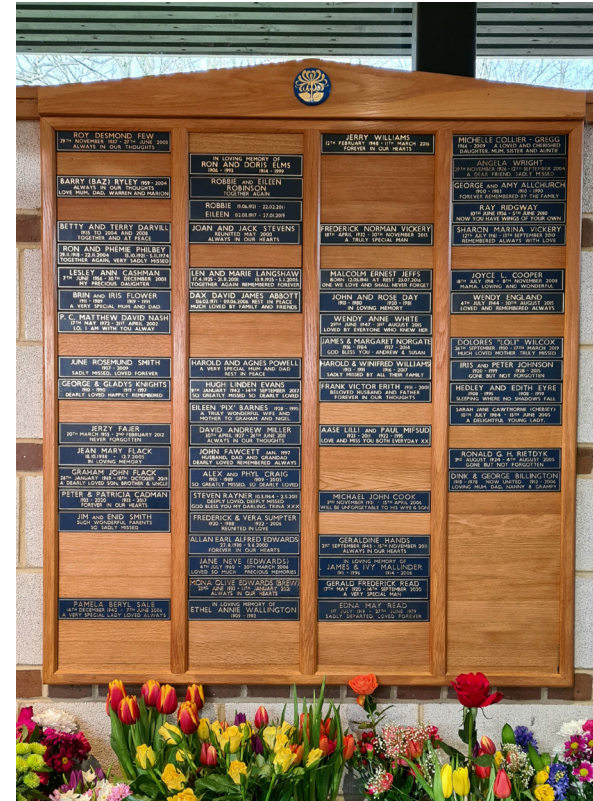 ROY DESMOND FEW
29TH NOVEMBER 1937 - 27TH JUNE 2003
ALWAYS IN OUR THOUGHTS
BARRY (BAZ) RYLEY 1959 - 2004
ALWAYS IN OUR THOUGHTS
LOVE MUM, DAD, WARREN AND MARION
BETTY AND TERRY DARVILL
1935 TO 2004 AND 2008
TOGETHER AND AT PEACE
RON AND PHEMIE PHILBEY
TOGETHER AGAIN, VERY SADLY MISSED
LESLEY ANN CASHMAN
7TH JUNE 1964 - 10TH DECEMBER 2003
MY PRECIOUS DAUGHTER
BRIN AND IRIS FLOWER
A VERY SPECIAL MUM AND DAD
P. C. MATTHEW DAVID NASH
17TH MAY 1972 - 21ST APRIL 2002
LO, I AM WITH YOU ALWAY
JUNE ROSEMUND SMITH
1927 - 2009
SADLY MISSED, LOVED ALWAYS
GEORGE & GLADYS KNIGHTS
DEARLY LOVED HAPPILY REMEMBERED
JERZY FAJER
20TH MARCH 1955 - 2ND FEBRUARY 2012
NEVER FORGOTTEN
JEAN MARY FLACK
18.10.1938 - 12.7.2005
IN LOVING MEMORY
GRAHAM JOHN FLACK
26TH JANUARY 1969 - 18TH OCTOBER 2019
A DEARLY LOVED SON, BROTHER & UNCLE
PETER & PATRICIA CADMAN
FOREVER IN OUR HEARTS
JIM AND ENID SMITH
SUCH WONDERFUL PARENTS
SO SADLY MISSED
PAMELA BERYL SALE
14TH DECEMBER 1942 - 7TH JUNE 2006
A VERY SPECIAL LADY LOVED ALWAYS
IN LOVING MEMORY OF
RON AND DORIS ELMS
1906 - 1993 1914 - 1999
ROBBIE AND EILEEN
ROBINSON
TOGETHER AGAIN
ROBBIE 11.06.1921 - 22.02.2011
EILEEN 02.03.1917 - 17.01.2019
JOAN AND JACK STEVENS
REUNITED MAY 2000
ALWAYS IN OUR HEARTS
LEN AND MARIE LANGSHAW
TOGETHER AGAIN REMEMBERED FOREVER
DAX DAVID JAMES ABBOTT
04.02.1971 - 09.06.2016 REST IN PEACE
MUCH LOVED BY FAMILY AND FRIENDS
HAROLD AND AGNES POWELL
A VERY SPECIAL MUM AND DAD
REST IN PEACE
HUGH LINDEN EVANS
8TH JANUARY 1942 - 14TH SEPTEMBER 2017
SO GREATLY MISSED SO DEARLY LOVED
EILEEN 'PIX' BARNES 1928 - 1995
A TRULY WONDERFUL WIFE AND
MOTHER TO GRAHAM AND NIGEL
DAVID ANDREW MILLER
10TH APRIL 1927 - 26TH JUNE 2011
ALWAYS IN OUR THOUGHTS
JOHN FAWCETT JAN. 1997
HUSBAND, DAD AND GRANDAD
DEARLY LOVED REMEMBERED ALWAYS
ALEX AND PHYL CRAIG
1901 - 1989 1909 - 2001
SO GREATLY MISSED, SO DEARLY LOVED
STEVEN RAYNER 10.5.1964 - 2.5.2011
DEEPLY LOVED, DEEPLY MISSED
GOD BLESS YOU MY DARLING, TRINA XXX
FREDERICK & VERA SUMPTER
1920 - 1988 1922 - 2006
REUNITED IN LOVE
ALLAN EARL ALFRED EDWARDS
27.8.1930 - 9.6.2000
FOREVER IN OUR HEARTS
JANE NEVE (EDWARDS)
4TH JULY 1960 - 20TH MARCH 2006
LOVED SO MUCH PRECIOUS MEMORIES
MONA OLIVE EDWARDS (BREW)
ALWAYS IN OUR HEARTS
IN LOVING MEMORY OF
ETHEL ANNIE WALLINGTON
1909 - 1992
JERRY WILLIAMS
12TH FEBRUARY 1948 - 11TH MARCH 2016
FOREVER IN OUR HEARTS
FREDERICK NORMAN VICKERY
18TH APRIL 1922 - 10TH NOVEMBER 2013
A TRULY SPECIAL MAN
MALCOLM ERNEST JEFFS
BORN 12.06.1941 AT REST 23.07.2016
ONE WE LOVE AND SHALL NEVER FORGET
JOHN AND ROSE DAY
IN LOVING MEMORY
WENDY ANNE WHITE
29TH JUNE 1947 - 31ST AUGUST 2015
LOVED BY EVERYONE WHO KNEW HER
JAMES & MARGARET NORGATE
GOD BLESS YOU ANDREW & SUSAN
HAROLD & WINIFRED WILLIAMS
1913 - 1991 1916 - 2017
SADLY MISSED BY ALL THEIR FAMILY
FRANK VICTOR ERITH
BELOVED HUSBAND AND FATHER
FOREVER IN OUR THOUGHTS
AASE LILLI AND PAUL MIFSUD
1921 - 2011 1922 - 1995
LOVE AND MISS YOU BOTH EVERYDAY XX
MICHAEL JOHN COOK
WILL BE UNFORGETTABLE TO HIS WIFE & SON
GERALDINE HANDS
21ST SEPTEMBER 1943 - 15TH NOVEMBER 2011
ALWAYS IN OUR HEARTS
IN LOVING MEMORY OF
JAMES & IVY MALLINDER
1911 - 1996 1914 - 2008
GERALD FREDERICK READ
17TH MAY 1920 - 14TH SEPTEMBER 2020
A VERY SPECIAL MAN
EDNA MAY READ
SADLY DEPARTED, LOVED FOREVER
MICHELLE COLLIER - GREGG
1966 - 2009 A LOVED AND CHERISHED
DAUGHTER, MUM, SISTER AND AUNTIE
ANGELA WRIGHT
A DEAR FRIEND, SADLY MISSED
GEORGE AND AMY ALLCHURCH
1900 - 1983 1910 - 1990
FOREVER REMEMBERED BY THE FAMILY
RAY RIDGWAY
10TH JUNE 1936 - 5TH JUNE 2010
NOW YOU HAVE WINGS OF YOUR OWN
SHARON MARINA VICKERY
12TH JULY 1961 - 13TH SEPTEMBER 2010
REMEMBERED ALWAYS WITH LOVE
JOYCE L. COOPER
18TH JULY 1918 - 8TH NOVEMBER 2008
MAMA, LOVING AND WONDERFUL
WENDY ENGLAND
4TH JULY 1944 - 10TH AUGUST 2015
LOVED AND REMEMBERED ALWAYS
DOLORES "LOLI" WILCOX
26TH SEPTEMBER 1930 - 17TH MARCH 2019
MUCH LOVED MOTHER TRULY MISSED
IRIS AND PETER JOHNSON
GONE BUT NOT FORGOTTEN
HEDLEY AND EDITH EYRE
1908 - 1995 1908 - 1999
SLEEPING WHERE NO SHADOWS FALL
SARAH JANE CAWTHORNE (CHERSEY)
10TH JULY 1984 - 13TH JUNE 2005
A DELIGHTFUL YOUNG LADY,
RONALD G. H. RIETDYK
3RD AUGUST 1924 - 8TH AUGUST 2005
GONE BUT NOT FORGOTTEN
DINK & GEORGE BILLINGTON
1918 - 1978 NOW UNITED 1912 - 2004
LOVING MUM, DAD, NANNY & GRAMPY